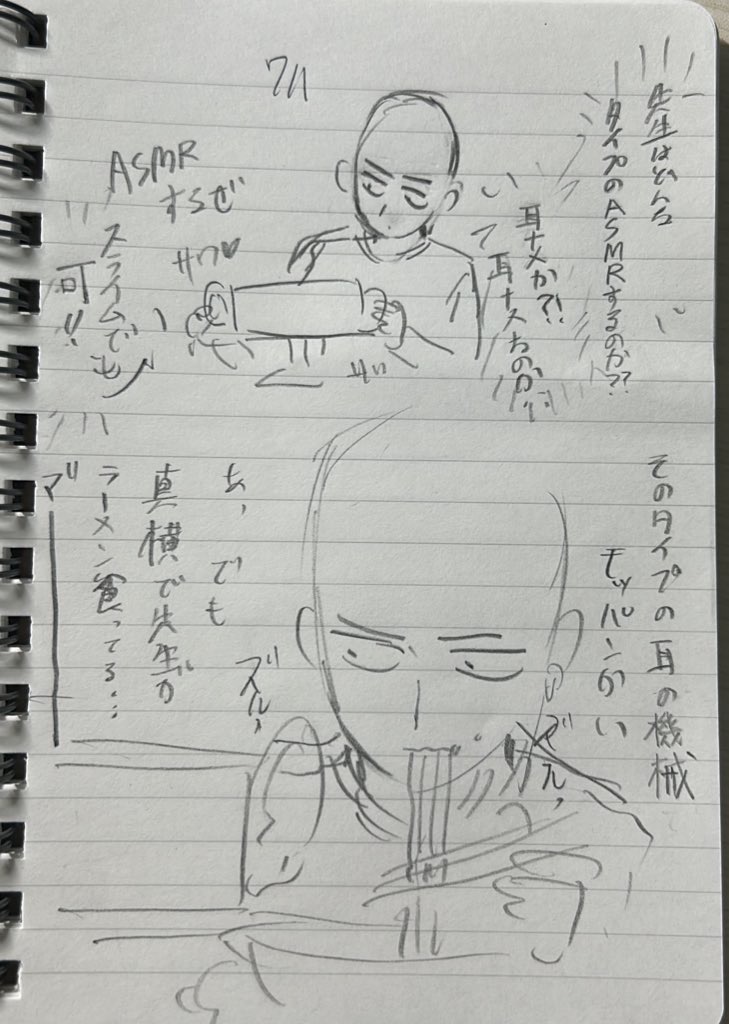 先生はどんな
タイプのASMRするのか??
耳ナメか?!
て 耳ナメたのか
ASMR
するぜ
サワ♡
スライムでも
可!!
サワ
そのタイプの耳の機械
モッパンかい
ズル、
ズル、
あ、でも
真横で先生が
ラーメン食ってる…